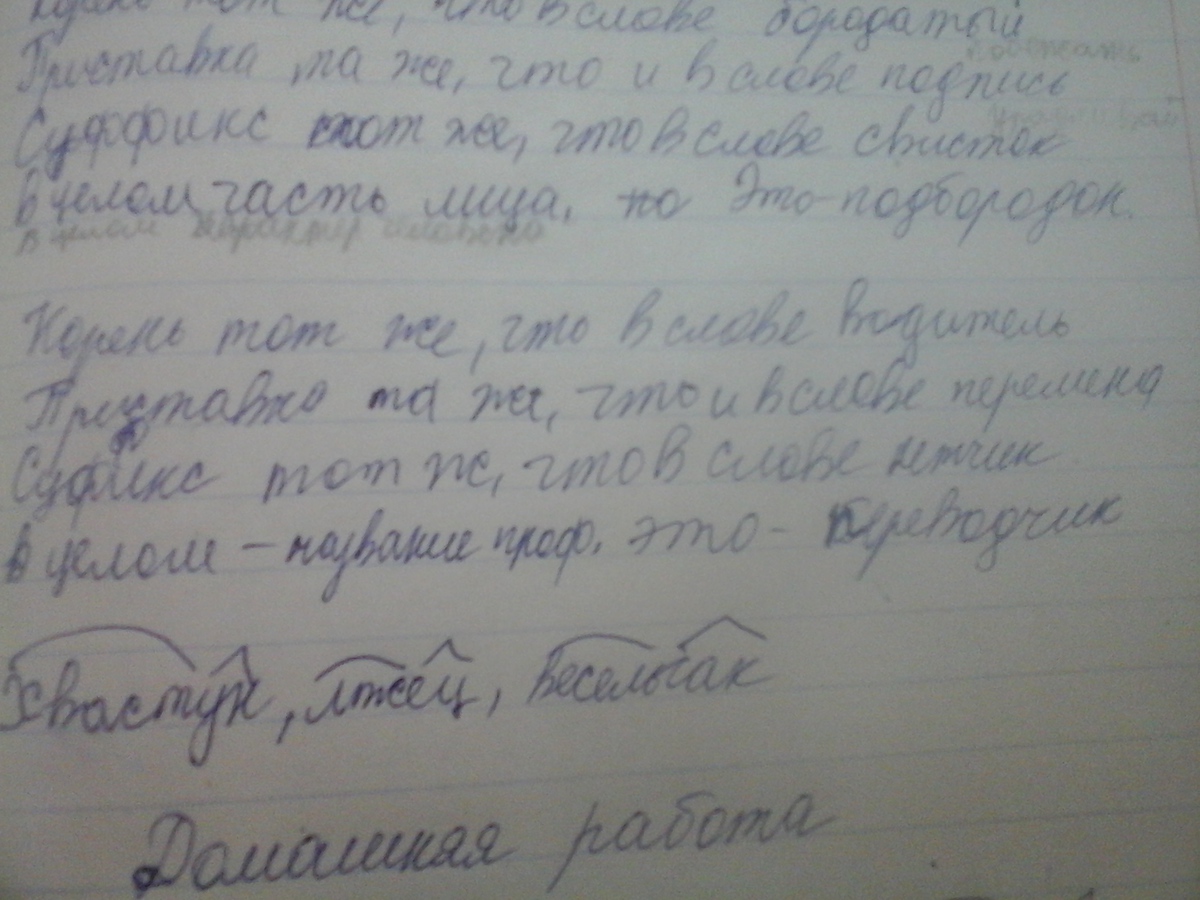 Корень тот же, что в слове бородатый
Приставка та же, что и в слове подпись
Суффикс тот же, что в слове свисток
В целом часть лица. Это-подбородок.
В целом характер человека
Корень тот же, что в слове водитель
Приставка та же, что и в слове перемена
Суфикс тот же, что в слове летчик
В целом - название проф. это - переводчик
Хвастун, лжец, весельчак
Домашняя работа